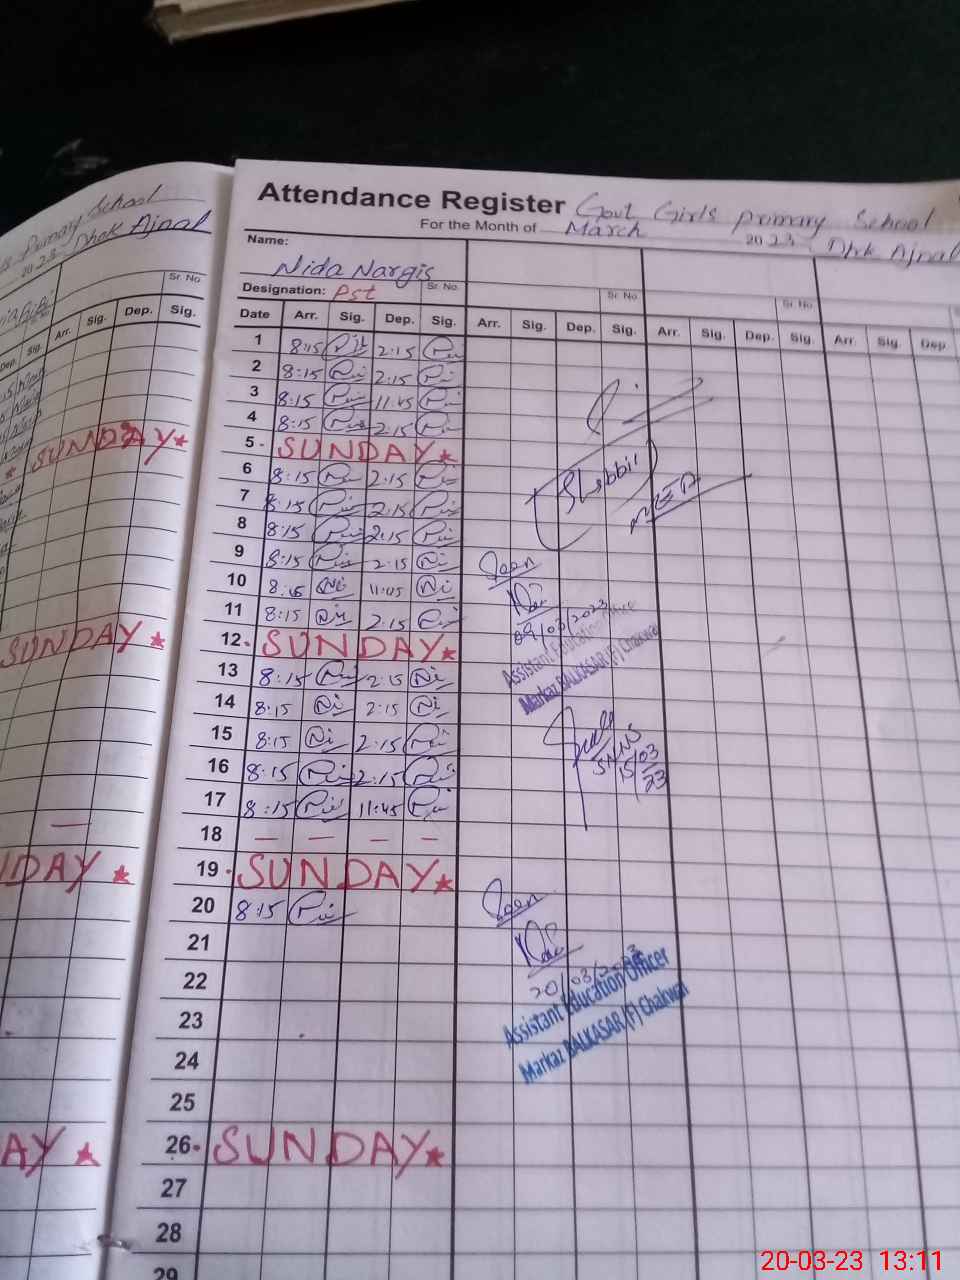 Primary School
2023 Dhok Ajnal
Sr. No.
Arr. Sig. Dep. Sig.
SUNDAY
SUNDAY
SUNDAY
Attendance Register Govt Girls primary School
For the Month of March 2023 Dhok Ajnal
Name: Nida Nargis
Designation: Pst Sr. No. Sr. No. Sr. No.
Date Arr. Sig. Dep. Sig. Arr. Sig. Dep. Sig. Arr. Sig. Dep. Sig. Arr. Sig. Dep.
1 8:15 2:15
2 8:15 2:15
3 8:15 11:45
4 8:15 2:15
5 SUNDAY
6 8:15 2:15
7 8:15 2:15
8 8:15 2:15
9 8:15 2:15 Seen
10 8:15 11:45
11 8:15 2:15 09/03/2023
12 SUNDAY Assistant Education Officer
13 8:15 2:15 Markaz BALKASAR (F) Chakwal
14 8:15 2:15
15 8:15 2:15 15/03/23
16 8:15 2:15
17 8:15 11:45
18 — — — —
19 SUNDAY
20 8:15 Seen
21
22 20/03/2023
23 Assistant Education Officer
24 Markaz BALKASAR (F) Chakwal
25
26 SUNDAY
27
28
29
20-03-23 13:11